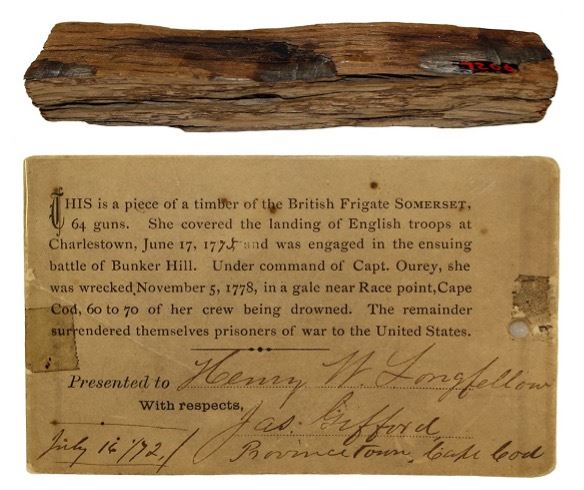 7200
THIS is a piece of a timber of the British Frigate SOMERSET,
64 guns. She covered the landing of English troops at
Charlestown, June 17, 1775 and was engaged in the ensuing
battle of Bunker Hill. Under command of Capt. Ourey, she
was wrecked November 5, 1778, in a gale near Race point, Cape
Cod, 60 to 70 of her crew being drowned. The remainder
surrendered themselves prisoners of war to the United States.
Presented to Henry W. Longfellow
With respects,
Jas. Gifford,
July 16 '72, Provincetown, Cape Cod